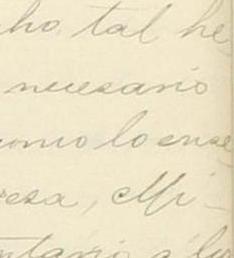 ho tal he
necesario
como lo ense
resa, Mi-
ntario a lo